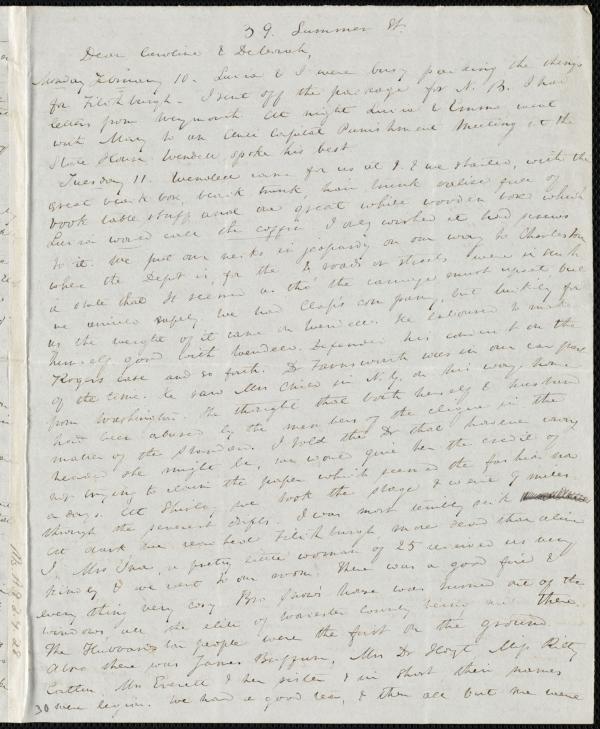 39. Summer St.
Dear Caroline & Deborah,
Monday February 10. Lucia & I were busy packing the things
for Fitchburgh. I sent off the package for N. B. I had
letters from Weymouth. At night Lucia & Emma went
with Mary to an Anti Capital Punishment Meeting at the
State House. Wendell spoke his best.
Tuesday 11. Wendell came for us at & we started, with the
great black box, black trunk, hair trunk, valise full of
book table stuff and one great white wooden box which
Lucia would call the coffin. I only wished it had screws
to it. We put our necks in jeopardy on our way to Charlestown
where the Depot is, for the roads or streets were in such
a state that it seemed as tho' the carriage must upset, but
we arrived safely. We had Clap's company, but luckily for
us the weight of it came on Wendell. He laboured to make
himself good with Wendell. Defended his conduct on the
Rogers case and so forth. Dr Farnsworth was in our car part
of the time. He saw Mrs Child in N. Y. on his way home
from Washington. He thought that both herself & husband
had been abused by the members of the clique in the
matter of the Standard. I told the Dr that however
she might be, we would give her the credit of
not trying to claim the paper which seemed the fashion now
a days. At Shirley we took the stage & were 9 miles
through the severest drifts. I was most terribly sick
At dark we reached Fitchburgh, more dead than alive
I. Mrs , a pretty little woman of 25 received us very
kindly & we went to our room. There was a good fire &
every thing very cosy. Bro house was turned out of the
windows, all the elite of Worcester county being there.
The Hubbardston people were the first on the ground
Also there was James Buffum, Mrs Dr Hoyt, Miss Kitty
Mrs Everett & her sister & in short their names
30 were legion. We had a good tea, & then all but me were